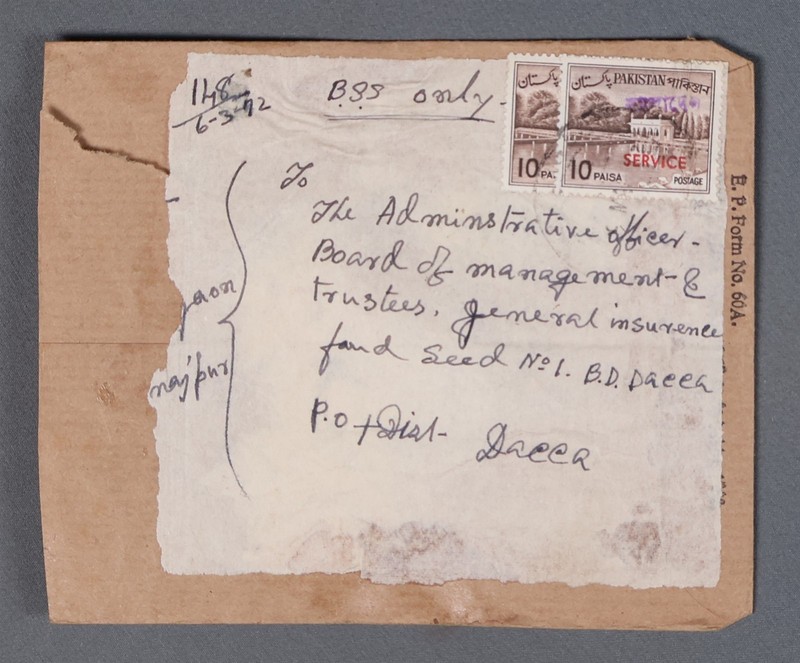 1148
6-3-72
B.S.S only.
پاکستان
10 PA.
پاکستان PAKISTAN পাকিস্তান
SERVICE
10 PAISA POSTAGE
E. P. Form No. 60A.
To
The Adminstrative officer-
Board of management- &
trustees, general insurence
fund Seed No 1. B.D. Dacca
P.O + Dist- Dacca
gaon
najpur